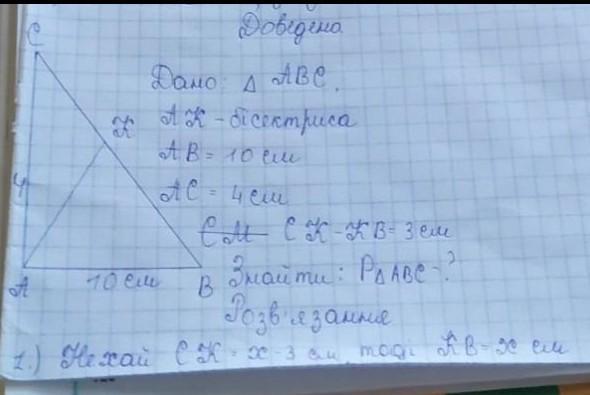 Доведена
C
Дано: △ ABC.
K
AK - бісектриса
AB = 10 см
4
AC = 4 см
CM CK - KB = 3 см
A
10 см
B
Знайти: P△ABC - ?
Розв'язання
1.) Нехай CK = x - 3 см, тоді KB = x см